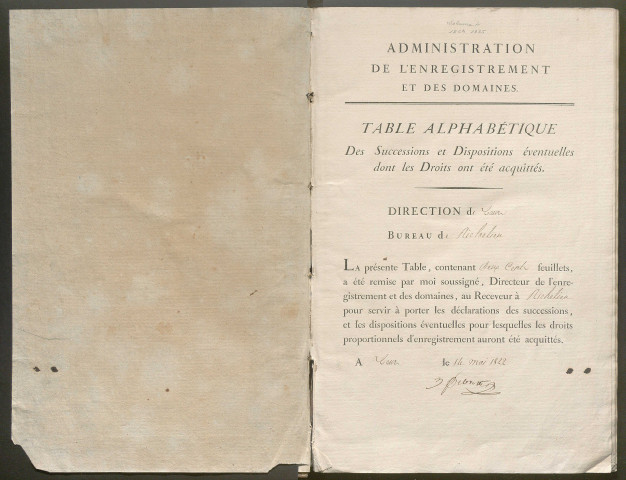 1822 1825
ADMINISTRATION
DE L'ENREGISTREMENT
ET DES DOMAINES.
TABLE ALPHABÉTIQUE
Des Successions et Dispositions éventuelles
dont les Droits ont été acquittés.
DIRECTION de
BUREAU de Richelieu
LA présente Table, contenant deux Cents feuillets,
a été remise par moi soussigné, Directeur de l'enre-
gistrement et des domaines, au Receveur à Richelieu
pour servir à porter les déclarations des successions,
et les dispositions éventuelles pour lesquelles les droits
proportionnels d'enregistrement auront été acquittés.
A le 14 mai 1822